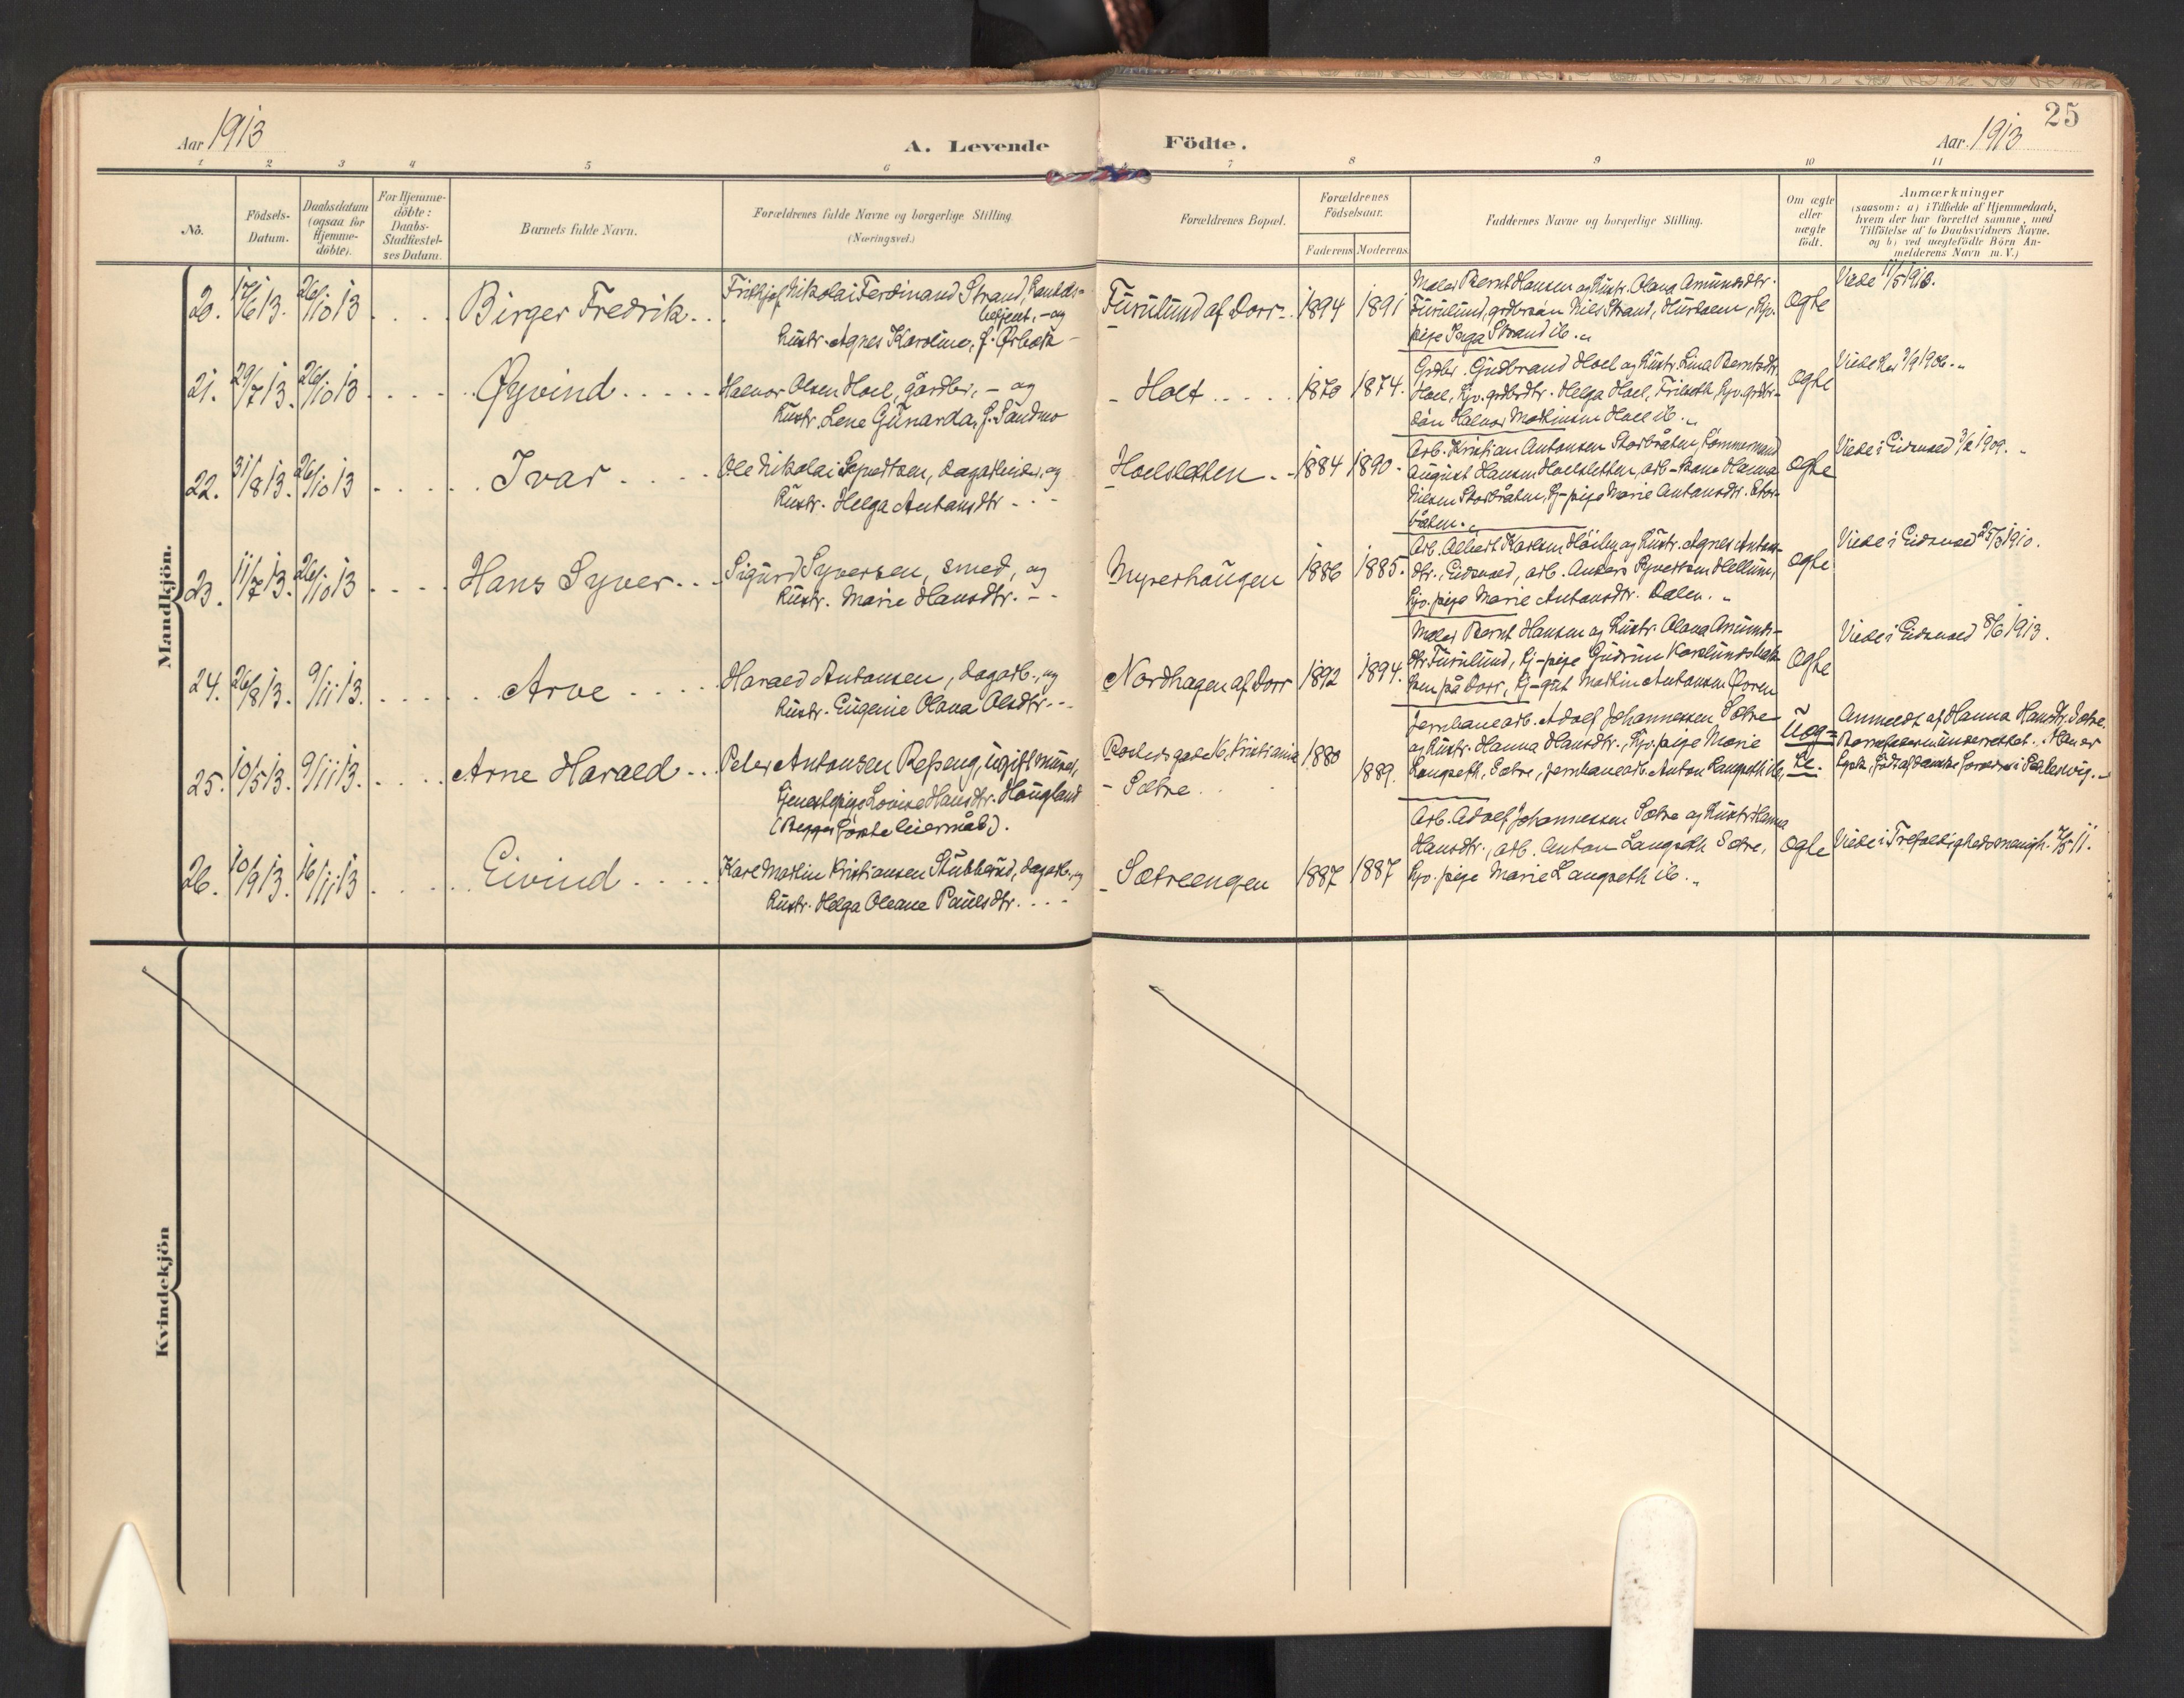 25
Aar 1913
A. Levende Födte.
Aar 1913
1 2 3 4 5 6 7 8 9 10 11
No.
Födsels-
Datum.
Daabsdatum
(ogsaa for
Hjemme-
döbte).
For Hjemme-
döbte:
Daabs-
Stadfæstel-
ses Datum.
Barnets fulde Navn.
Forældrenes fulde Navne og borgerlige Stilling.
(Næringsvei.)
Forældrenes Bopæl.
Forældrenes
Födselsaar.
Faderens Moderens
Faddernes Navne og borgerlige Stilling.
Om ægte
eller
uægte
født.
Anmærkninger
(saasom: a) i Tilfælde af Hjemmedaab,
hvem der har forrettet samme, med
Tilföielse af to Daabsvidners Navne,
og b) ved uægtefödte Börn An-
melderens Navn m.V.)
Mandkjön.
20.
17/6 13.
26/10 13
Birger Fredrik
Frithjof Nikolai Ferdinand Strand, handels-
betjent, - og
Hustr. Agnes Karoline, f. Ørbæk
Furulund af Dorr
1894
1891
Maler Bernt Hansen og Hustr. Olava Amundsdtr.
Furulund, grdbrsøn Nils Strand, Hurdalen, Ejv.
pige Inga Strand ib.
Ogte
Viede 11/5 1913.
21.
29/7 13.
26/10 13
Øyvind
Halvor Olsen Hoel, gårdbr, - og
Hustr. Lene Gunarda, f. Sandmo
Holt
1870
1874.
Grdbr. Gudbrand Hoel og Hustr. Lina Berntsdtr.
Hoel, Ejv. grdbrdtr. Helga Hoel, Frilseth, Ejv. grdbr-
søn Halvor Martinsen Hoel ib.
Ogte
Viede her 2/9 1906.
22.
31/8 13.
26/10 13
Ivar
Ole Nikolai Syvertsen, dagarbeider, og
Hustr. Helga Antonsdtr.
Hoelsletten
1884
1890.
Arb. Kristian Antonsen Storbråten, tømmermand
August Hansen Hoelsletten, arb-kone Hanna
Nilsen Storbråten, Ej-pige Marie Antonsdtr. Stor-
bråten.
Ogte
Viede i Eidsvold 3/2 1909.
23.
11/7 13.
26/10 13
Hans Syver
Sigurd Syversen, smed, og
Hustr. Marie Hansdtr.
Myrerhaugen
1886
1885.
Arb. Albert Karlsen Höiby og Hustr. Agnes Anton-
dtr., Eidsvold, arb. Anders Syvertsen Hellum,
Ejv. pige Marie Antonsdtr. Dalen.
Ogte
Viede i Eidsvold 25/3 1910.
24.
26/8 13.
9/11 13.
Arve
Harald Antonsen, dagarb., og
Hustr. Eugenie Olava Olsdtr.
Nordhagen af Dorr
1892
1894.
Maler Bernt Hansen og Hustr. Olava Amunds-
dtr. Furulund, Ej-pige Gudrun
på Dorr, Ej-gut Martin Antonsen
Ogte
Viede i Eidsvold 8/6 1913.
25.
10/5 13.
9/11 13.
Arne Harald
Peter Antonsen Refseng, ugift murer,
tjenestepige Lovise Hansdtr. Haugland
(Begges første leiermål).
16, Kristiania
- Sætre
1880
1889.
Jernbanearb. Adolf Johannessen Sætre
og Hustr. Hanna Hansdtr., Ejv. pige Marie
Langseth, Sætre, jernbanearb. Anton Langseth ib.
Uog-
te.
Anmeldt af Hanna Hansdtr. Sætre.
Barnefader underrettet. Han er
født af danske forældre i Schleswig.
26.
10/9 13.
16/11 13
Eivind
Karl Martin Kristiansen Stubberud, dagarb., og
Hustr. Helga Oleane Paulsdtr.
Sætreengen
1887
1887
Arb. Adolf Johannessen Sætre og Hustr. Hanna
Hansdtr., arb. Anton Langseth Sætre,
Ejv. pige Marie Langseth ib.
Ogte
Viede i Trefoldighedsmenigh. 11.
Kvindekjön